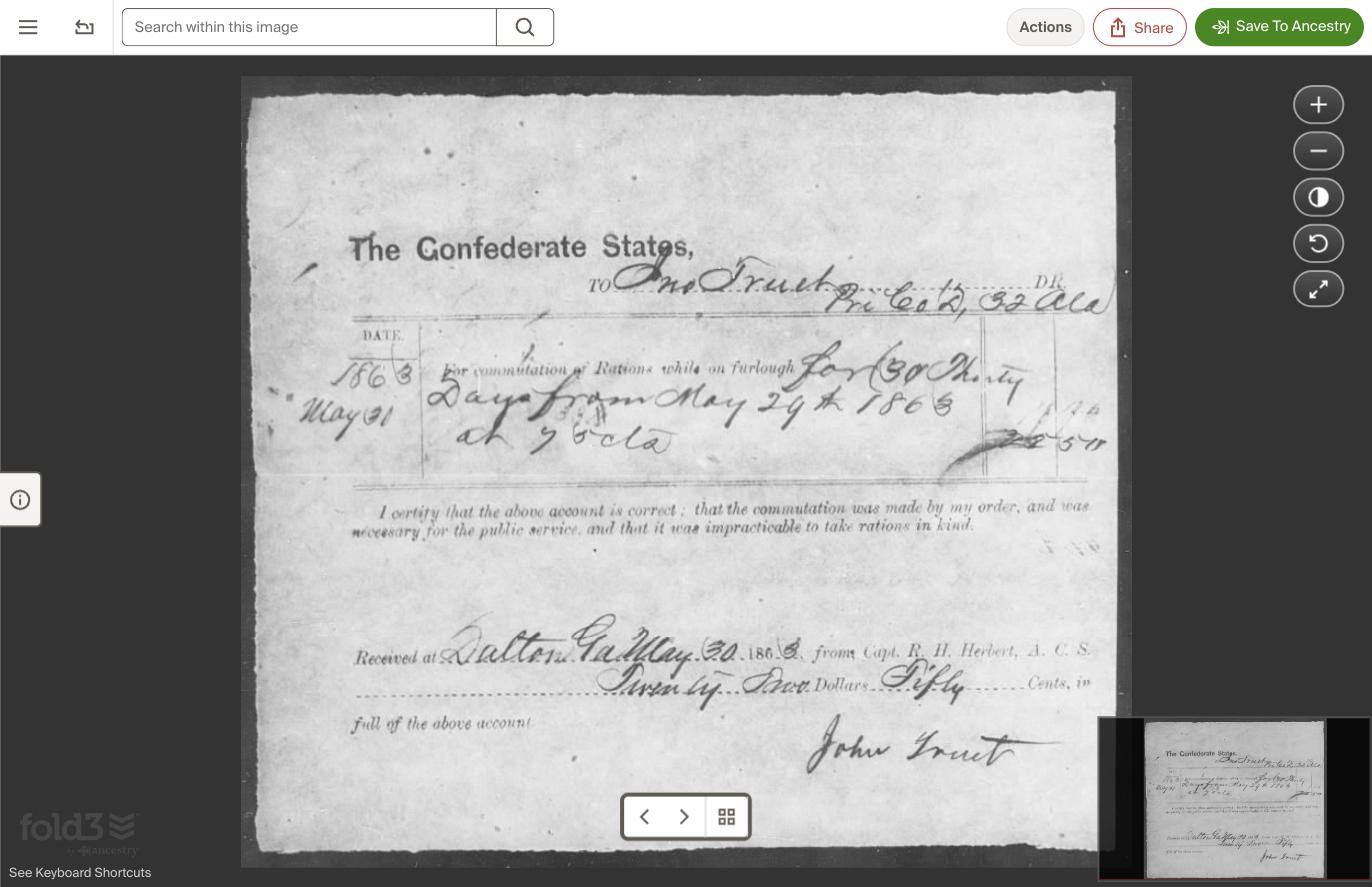 Search within this image
Actions
Share
Save To Ancestry
The Confederate States,
TO Jno Truet DR.
Pri Co D, 32 Ala
DATE.
1863
May 31
For commutation of Rations while on furlough for (30 Thirty
Days from May 29th 1863
at 75 cts
22 50
I certify that the above account is correct ; that the commutation was made by my order, and was
necessary for the public service, and that it was impracticable to take rations in kind.
Received at Dalton Ga May 30 1863, from Capt. R. H. Herbert, A. C. S.
Twenty Two Dollars Fifty Cents, in
full of the above account.
John Truet
fold3
by ancestry
See Keyboard Shortcuts